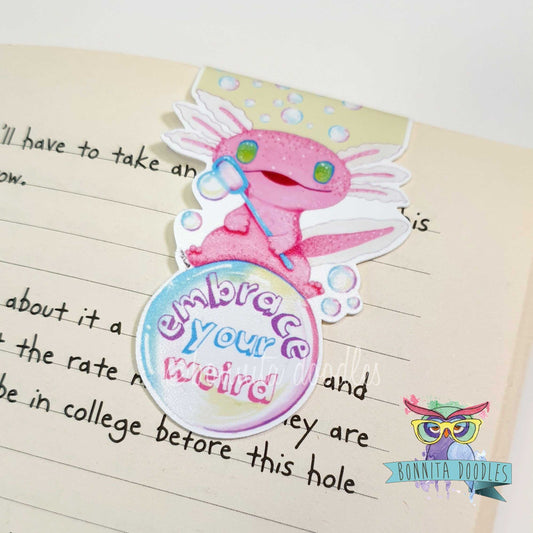 'll have to take an
is
ow.
embrace
your
weird
bonnita doodles
about it a
t the rate
and
ey are
be in college before this hole
BONNITA DOODLES